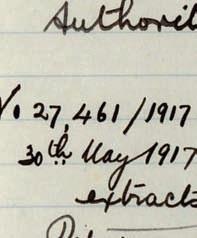 Authorit
V. 27,461/1917
30th May 1917
extracts